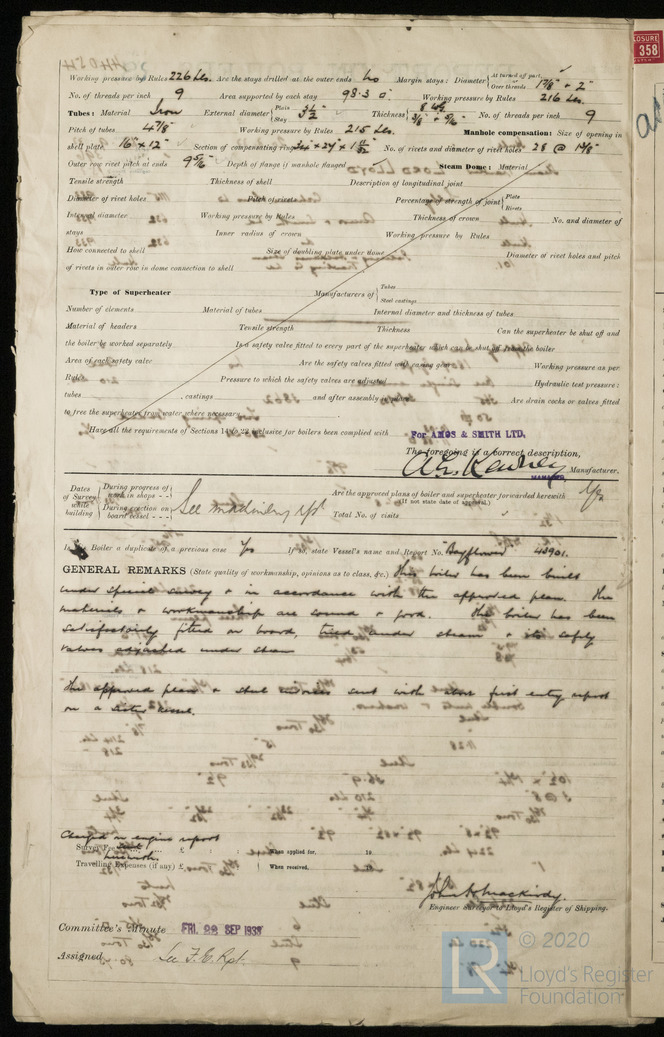 Working pressure by Rules 226 Lbs. Are the stays drilled at the outer ends No Margin stays: Diameter { At turned off part, or Over threads 1 7/8" + 2"
No. of threads per inch 9 Area supported by each stay 98.3 Working pressure by Rules 216 Lbs.
Tubes: Material Iron External diameter { Plain Stay 3 1/2" Thickness { No. of threads per inch 9
Pitch of tubes 4 7/8" Working pressure by Rules 215 Lbs. Manhole compensation: Size of opening in
shell plate 16" x 12" Section of compensating ring No. of rivets and diameter of rivet holes 28 @
Outer row rivet pitch at ends 9 5/16" Depth of flange if manhole flanged Steam Dome: Material
Tensile strength Thickness of shell Description of longitudinal joint
Diameter of rivet holes Pitch of rivets Percentage of strength of joint { Plate Rivets
Internal diameter Working pressure by Rules Thickness of crown No. and diameter of
stays Inner radius of crown Working pressure by Rules
How connected to shell Size of doubling plate under dome Diameter of rivet holes and pitch
of rivets in outer row in dome connection to shell
Type of Superheater Manufacturers of { Tubes Steel castings
Number of elements Material of tubes Internal diameter and thickness of tubes
Material of headers Tensile strength Thickness Can the superheater be shut off and
the boiler be worked separately Is a safety valve fitted to every part of the superheater which can be shut off from the boiler
Area of each safety valve Are the safety valves fitted with easing gear Working pressure as per
Rules Pressure to which the safety valves are adjusted Hydraulic test pressure:
tubes castings and after assembly Are drain cocks or valves fitted
to free the superheater from water where necessary
Have all the requirements of Sections 14 to 22 inclusive for boilers been complied with
For AMOS & SMITH LTD,
The foregoing is a correct description,
Manufacturer.
MANAGER
Dates of Survey while building { During progress of work in shops - - During erection on board vessel - - - See machinery rpt Are the approved plans of boiler and superheater forwarded herewith (If not state date of approval.)
Total No. of visits
Is this Boiler a duplicate of a previous case Yes If so, state Vessel's name and Report No. Bayflower 43901.
GENERAL REMARKS (State quality of workmanship, opinions as to class, &c.) This boiler has been built
under special survey & in accordance with the approved plan. The
materials & workmanship are sound & good. The boiler has been
satisfactorily fitted on board, tried under steam & its safety
valves adjusted under steam
The approved plan & steel sent with first entry report
on a sister vessel.
Charged on engine report
Survey Fee £ : : When applied for, 19
herewith.
Travelling Expenses (if any) £ : : When received, 19
Engineer Surveyor to Lloyd's Register of Shipping.
Committee's Minute FRI. 22 SEP 1933
Assigned See F.E. Rpt.
© 2020
LR
Lloyd's Register
Foundation
358